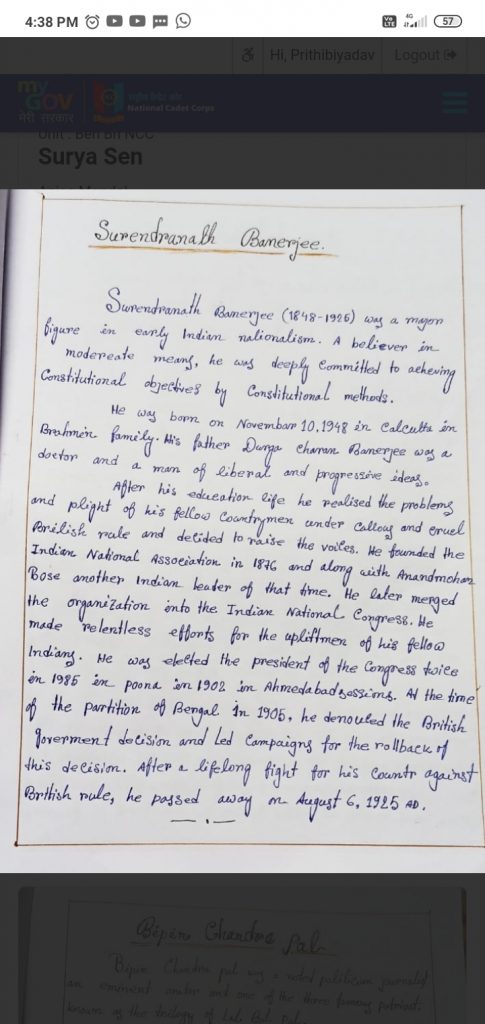 4:38 PM
4G
Vo LTE
57
Hi, Prithibiyadav
Logout
my GOV
मेरी सरकार
राष्ट्रीय कैडेट कोर
National Cadet Corps
Unit : Ben Bn NCC
Surya Sen
Surendranath Banerjee.
Surendranath Banerjee (1848-1925) was a major
figure in early Indian nationalism. A believer in
modereate means, he was deeply committed to acheving
Constitutional objectives by Constitutional methods.
He was born on November 10, 1948 in Calcutta in
Brahmin family. His father Durga charan Banerjee was a
doctor and a man of liberal and progressive ideas.
After his education life he realised the problems
and plight of his fellow Countrymen under callous and cruel
British rule and decided to raise the voices. He founded the
Indian National Association in 1876 and along with Anandmohan
Bose another Indian leader of that time. He later merged
the organization into the Indian National Congress. He
made relentless efforts for the upliftmen of his fellow
Indians. He was elected the president of the Congress twice
in 1985 in poona in 1902 in Ahmedabad sessions. At the time
of the partition of Bengal In 1905, he denouced the British
Goverment decision and Led Campaigns for the rollback of
this decision. After a lifelong fight for his Countr against
British rule, he passed away on August 6, 1925 AD.
Bipin Chandra Pal
Bipin Chandra pal was a noted politician journalist
an eminent orator and one of the three famous patriots
known as the trilogy of Lal Bal Pal.